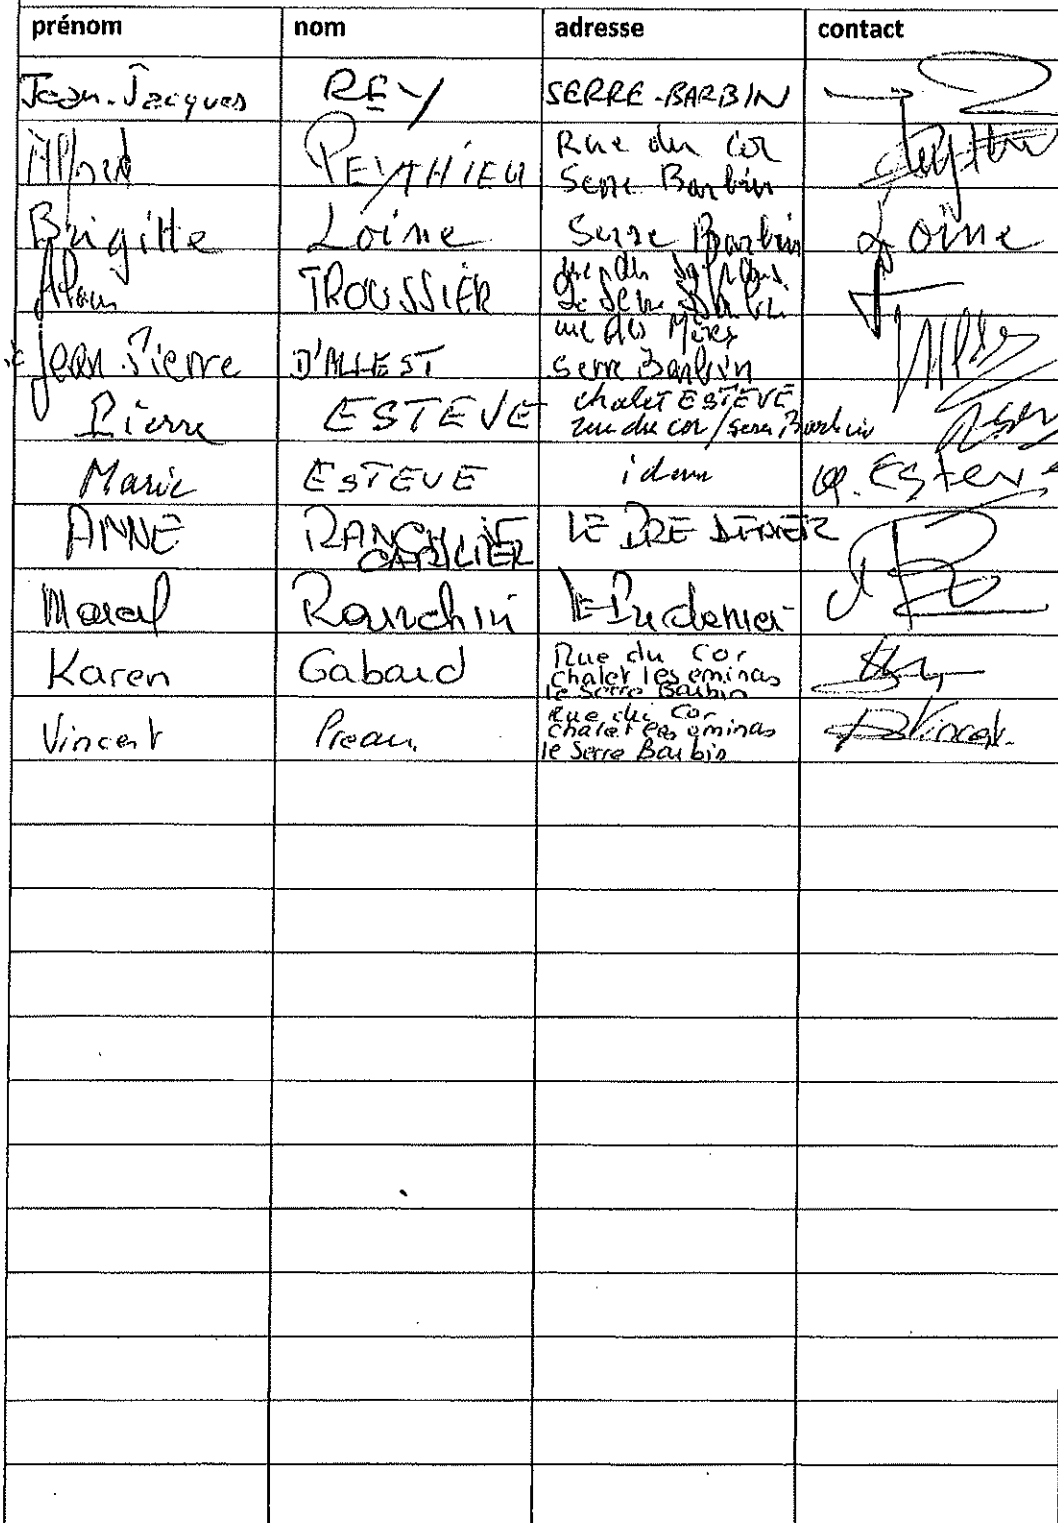 prénom nom adresse contact
Jean-Jacques REY SERRE-BARBIN
Alfred PEYTHIEU Rue du Col
Serre Barbin
Brigitte Loine Serre Barbin Loine
Alain TROUSSIER
Jean-Pierre D'ALLEST
Serre Barbin
Pierre ESTEVE chalet ESTEVE
rue du col / serre Barbin
Marie ESTEVE idem Esteve
ANNE LE PRE
CARLIER
Marcel Ranchin
Karen Gabard Rue du Cor
chalet les eminas
le Serre Barbin
Vincent Preau Rue du Cor
chalet les eminas
le Serre Barbin Vincent